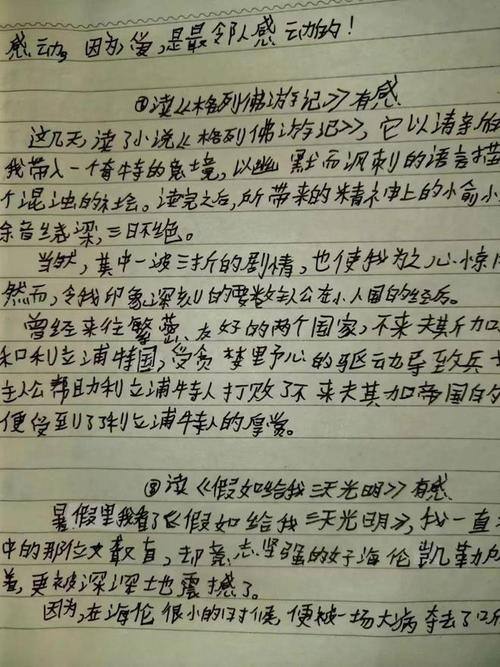 感动，因为爱，是最邻人感动的！
②读《格列佛游记》有感
这几天，读了小说《格列佛游记》，它以清新的
我带入一个奇特的意境，以幽默而讽刺的语言描
个混浊的社会。读完之后，所带来的精神上的愉
余音绕梁，三日不绝。
当然，其中一波三折的剧情，也使我为之心惊
然而，令我印象深刻的要数主人公在小人国的经历。
曾经来往繁 友好的两个国家，不来夫斯加
和利立浦特国，受贪婪野心的驱动导致兵
主人公帮助利立浦特人打败了不来夫其加帝国的
便受到了利立浦特人的厚赏。
③读《假如给我三天光明》有感
暑假里我看了《假如给我三天光明》，我一直
中的那位又聋盲，却意志坚强的女子海伦凯勒
着，更被深深地震撼了。
因为，在海伦很小的时候，便被一场大病夺去了